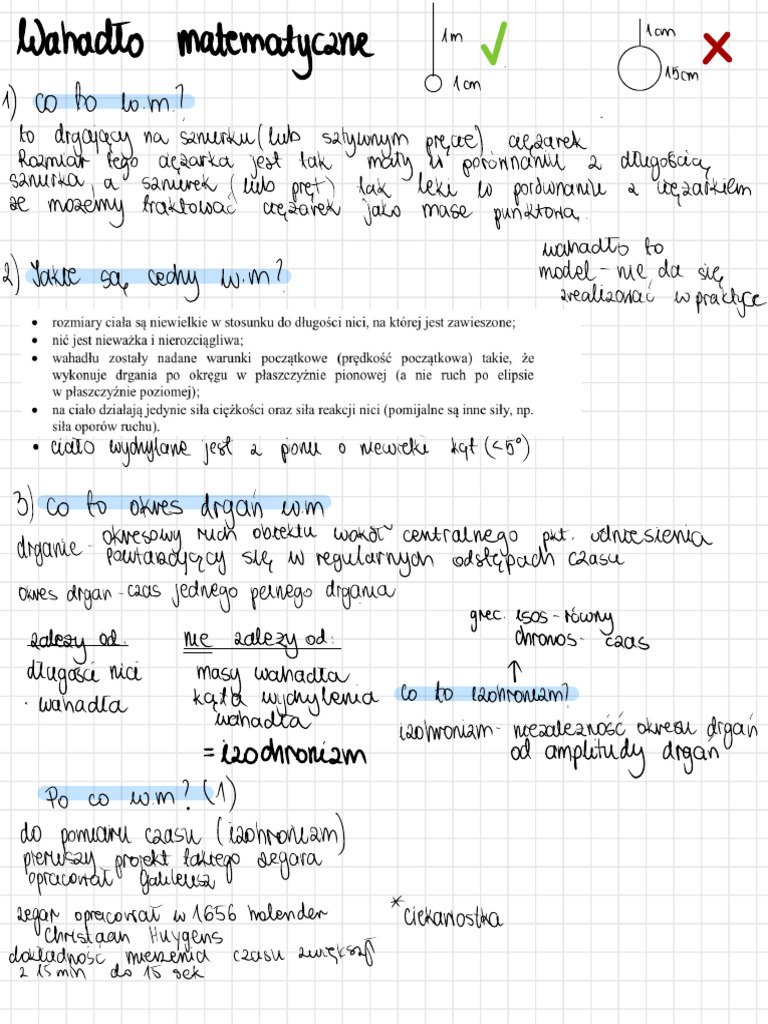 Wahadło matematyczne
1m
1cm
1cm
15cm
1) co to w.m?
to drgający na sznurku (lub sztywnym pręcie) ciężarek
Rozmiar tego ciężarka jest tak mały w porównaniu z długością
sznurka, a sznurek (lub pręt) tak lekki w porównaniu z ciężarkiem
że możemy traktować ciężarek jako masę punktową.
wahadło to
model - nie da się
zrealizować w praktyce
2) Jakie są cechy w.m?
• rozmiary ciała są niewielkie w stosunku do długości nici, na której jest zawieszone;
• nić jest nieważka i nierozciągliwa;
• wahadłu zostały nadane warunki początkowe (prędkość początkowa) takie, że
wykonuje drgania po okręgu w płaszczyźnie pionowej (a nie ruch po elipsie
w płaszczyźnie poziomej);
• na ciało działają jedynie siła ciężkości oraz siła reakcji nici (pomijalne są inne siły, np.
siła oporów ruchu).
• ciało wychylane jest z pionu o niewielki kąt (<5°)
3) co to okres drgań w.m
drganie - okresowy ruch obiektu wokół centralnego pkt. odniesienia
powtarzający się w regularnych odstępach czasu
okres drgan - czas jednego pełnego drgania
zależy od:
długości nici
wahadła
nie zależy od:
masy wahadła
kąta wychylenia
wahadła
= izochronizm
grec. isos - równy
chronos - czas
co to izohronizm?
izohronizm - niezależność okresu drgań
od amplitudy drgań
Po co w.m? (1)
do pomiaru czasu (izohronizm)
pierwszy projekt takiego zegara
opracował Galileusz
zegar opracował w 1656 holender
Christiaan Huygens
dokładność mierzenia czasu zwiększył
z 15 min do 15 sek
* ciekawostka